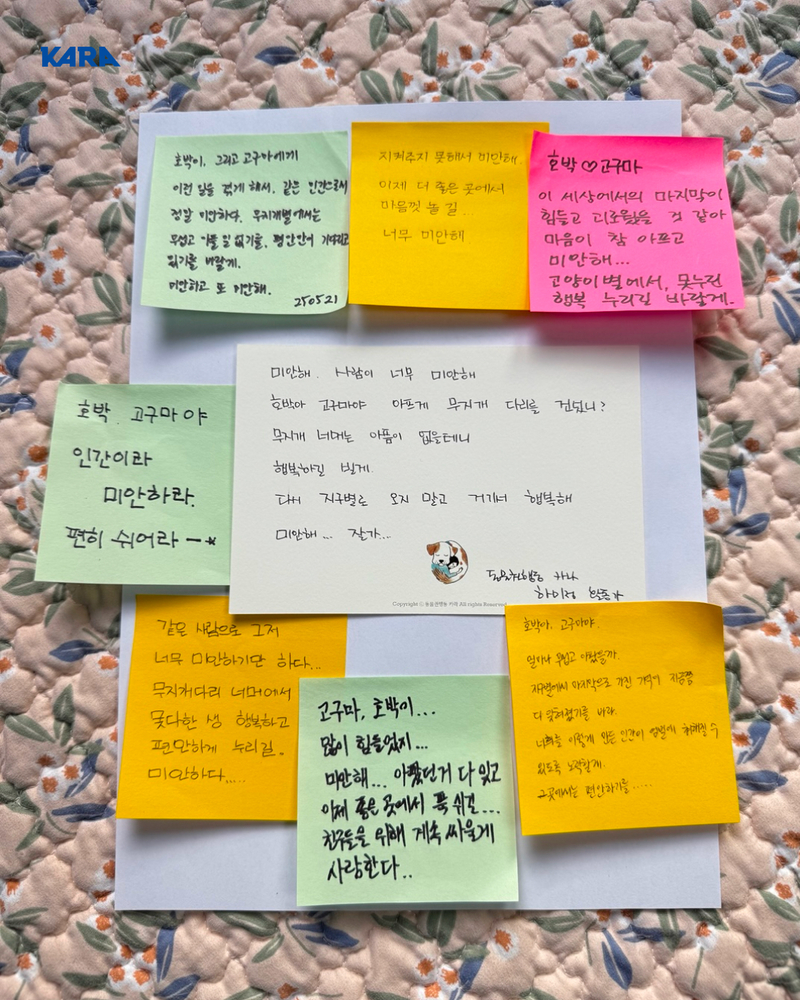 KARA
호박이, 그리고 고구마에게
이런 일을 겪게 해서, 같은 인간으로서
정말 미안하다. 무지개별에서는
무섭고 아플 일 없기를, 편안한히 기다리고
있기를 바랄게.
미안하고 또 미안해.
250521
지켜주지 못해서 미안해.
이제 더 좋은 곳에서
마음껏 놀 길...
너무 미안해
호박♡고구마
이 세상에서의 마지막이
힘들고 괴로웠을 것 같아
마음이 참 아프고
미안해...
고양이별에서, 못누린
행복 누리길 바랄게.
호박. 고구마야
인간이라
미안하라.
편히 쉬어라 ー*
미안해. 사람이 너무 미안해
호박아 고구마야 아프게 무지개 다리를 건넜니?
무지개 너머는 아픔이 없을테니
행복하길 빌게.
다시 지구별로 오지 말고 거기서 행복해
미안해... 잘가...
동물권행동 카라
Copyright ⓒ 동물권행동 카라 All rights Reserved
같은 사람으로 그저
너무 미안하기만 하다...
무지개다리 너머에서
못다한 생 행복하고
편안하게 누리길.
미안하다.....
고구마, 호박이...
많이 힘들었지...
미안해... 아팠던거 다 잊고
이제 좋은 곳에서 푹 쉬길...
친구들을 위해 계속 싸울게
사랑한다..
호박아. 고구마야.
얼마나 무섭고 아팠을까.
지구별에서 마지막으로 가진 기억이 지금쯤
다 잊혀졌기를 바라.
너희를 이렇게 만든 인간이 엄벌에 처해질 수
있도록 노력할게.
그곳에서는 편안하기를.....